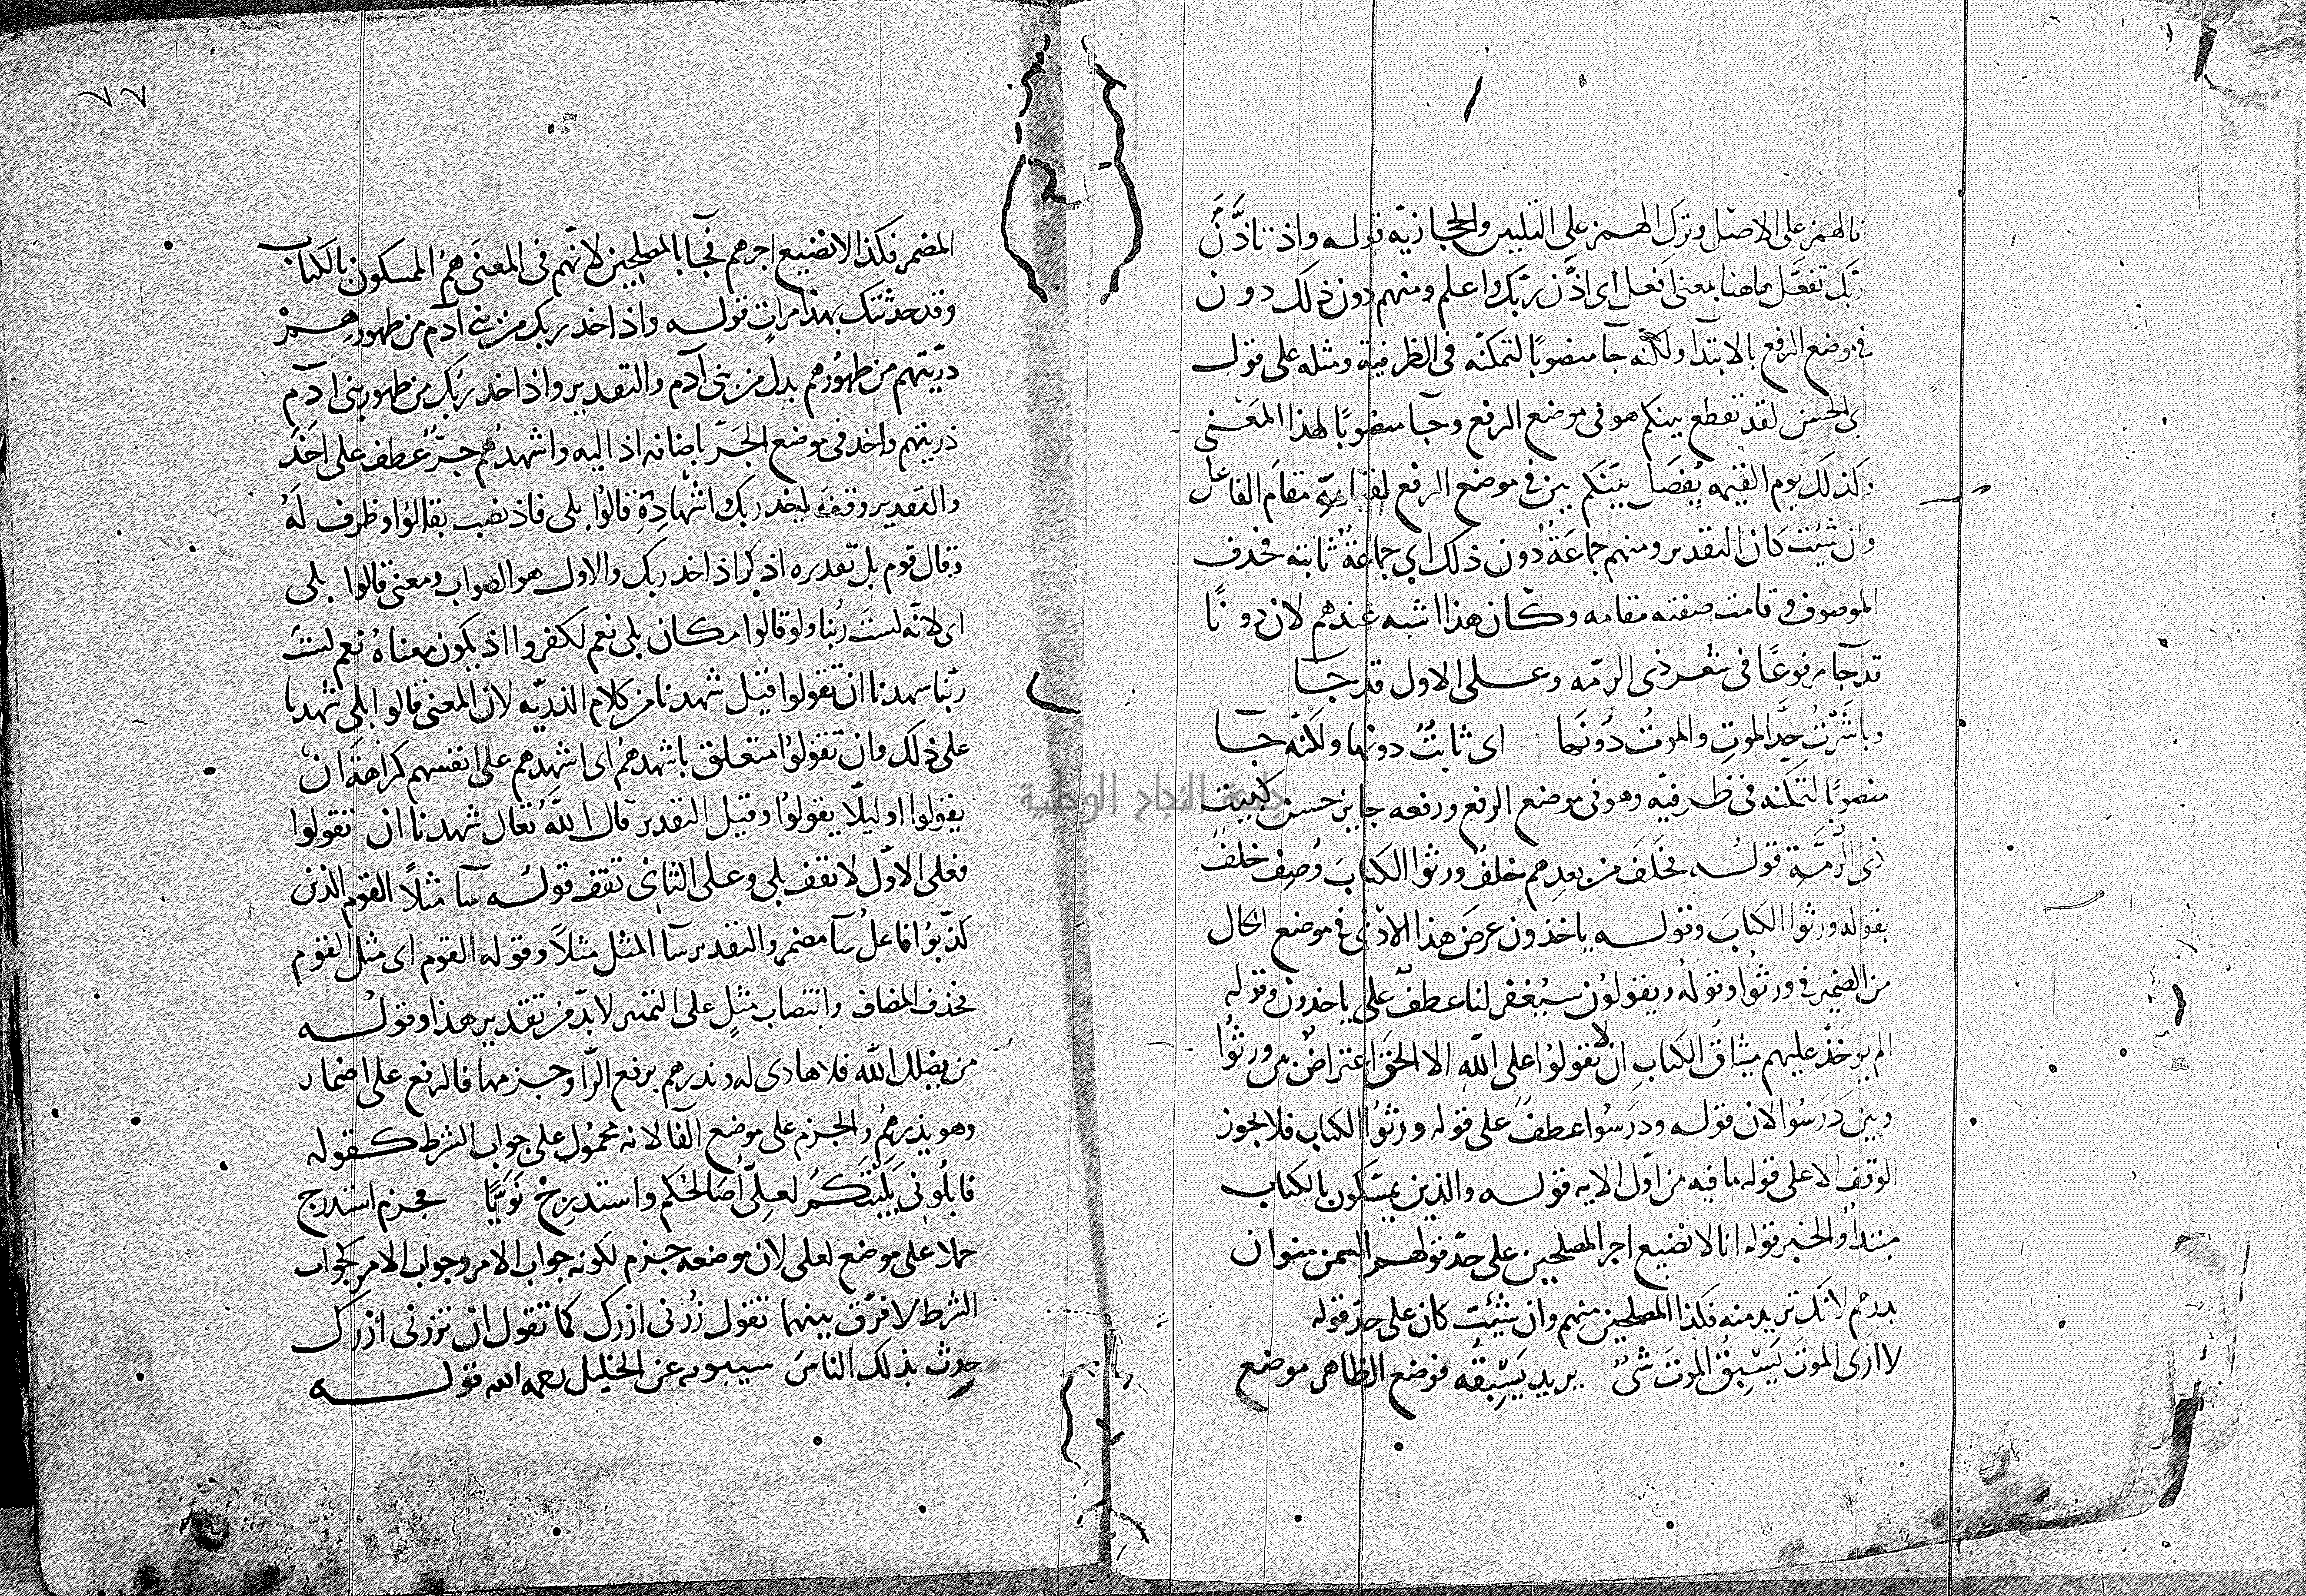 فالهمز على الاصل وترك الهمز على التليين والحجازيه قوله واذ تاذَّنَ
ربّك تفعَّل هاهنا بمعنى افعل اى اذَّن ربّك واعلم ومنهم دون ذلك دون
فى موضع الرفع بالابتدا ولكنّه جآ منصوبًا لتمكنّه فى الظرفية ومثله على قول
ابى الحسن لقد تقطع بينكم هو فى موضع الرفع وجآ منصوبًا لهذا المعنى
وكذلك يوم القيمه يُفصَل بَينَكم بين فى موضع الرفع لقيامه مقامَ الفاعل
وان شئت كان التقدير ومنهم جماعَةٌ دُون ذلك اي جماعَةٌ ثابته فحذف
الموصوف وقامت صفته مقامه وكان هذا اشبه عندهم لان دونًا
قد جآ مرفوعًا فى شعر ذى الرمّه وعلى الاول قد جا
وباشَرْتُ حِدَّ الموتِ والموتُ دُونَها اى ثابتٌ دونها ولكنّه جا
منصوبًا لتمكنه فى ظرفيّه وهو فى موضع الرفع ورفعه جايز حسن كبيت
ذى الرُّمَّةِ قولُه فخَلَفَ من بعدِهم خلفٌ ورثوا الكتابَ وُصِف خلفٌ
بقوله ورثوا الكتابَ وقوله ياخذون عرضَ هذا الادنى فى موضع الحال
من الضمير فى ورثُوا وقولُه ويقولوُن سيُغفر لنا عطفٌ على ياخذون وقوله
الم يوخَذْ عليهم ميثاقُ الكتابِ ان لا تقولوُا على اللّه الا الحَقّ اعتراضٌ بين ورثُوا
وبينَ دَرَسُوا لان قوله ودَرَسُوا عطفٌ على قوله ورثوُا الكتاب فلا يجوز
الوقف الا على قوله ما فيه من اوّل الايه قوله والذين يمسّكون بالكتاب
مبتدأ والخبر قوله انا لا نضيع اجر المصلحين على حدّ قولهم السمن منوان
بدرهم لانّك تريد منه فكذا المصلحين منهم وان شئت كان على حدّ قوله
لا ارَى الموتَ يَسْبِقُ الموتَ شىٌ يريد يَسْبِقُه فوضع الظاهر موضع
٧٧
المضمر فكذا لا نضيع اجرهم فجآ بالمصلحين لانّهم فى المعنَى همُ الممسكون بالكتاب
وقد حدثتك بهذا مراتٍ قوله واذ اخذ ربك من بنى آدم من ظهورهمْ
ذرّيتهم من ظهُورهم بدل من بنى آدم والتقدير واذ اخذ ربّك من ظهور بنى آدم
ذريتهم واخذ فى موضع الجَرّ باضافه اذ اليه واشهدهُم جرٌّ عطف على اخذَ
والتقدير وقت ربك واشهادِهِ قالُوا بلى فاذ نصب بقالوُا وظرف لهُ
وقال قوم بل تقديره اذكر اذ اخذ ربك والاول هو الصواب ومعنى قالوا بلى
اى لانّه لستَ ربُنا ولو قالوا مكان بلى نعم لكفروا اذ يكون معناهُ نعم لستَ
ربّنا شهدنا ان تقولوا قيل شهدنا من كلام الذريّه لان المعنى قالوا بلى شهدنا
على ذلك وان تقولوُا متعلق باشهدهُم اى اشهدهم على انفسهم كراهةَ انْ
يقولوا او ليلّا يقولوُا وقيل التقدير قال اللَّهُ تعالى شهدنا ان تقولوا
فعلى الاوّل لا تقف بلى وعلى الثاني تقف قولُه سآ مثلًا القوم الذين
كذّبوُا فاعلُ سآ مضمر والتقدير سآ المثل مثلًا وقوله القوم اى مثل القوم
فحذف المضاف وانتصاب مثلٍ على التمييز لابدّ من تقدير هذا وقولُه
من يضلل اللّه فلا هادى له ونذرهم برفع الرّآ وجزمها فالرفع على اضمار
وهو يذرهُم والجزم على موضع الفآ لانه محموُل على جواب الشرط كقوله
فابلُونى بَلِيَّتكُمُ لعلِىّ اُصَالحُكم واستدرِجْ نَوَيَّا فجزم استدرج
حملا على موضع لعلى لان موضعه جزم لكونه جواب الامر وجواب الامر كجواب
الشرط لا فرق بينهما تقول زُرْنى ازرك كما تقول انْ تزرنى ازرك
حدث بذلك الناسَ سيبويه عن الخليل رحمه الله قوله
جامعة النجاح الوطنية